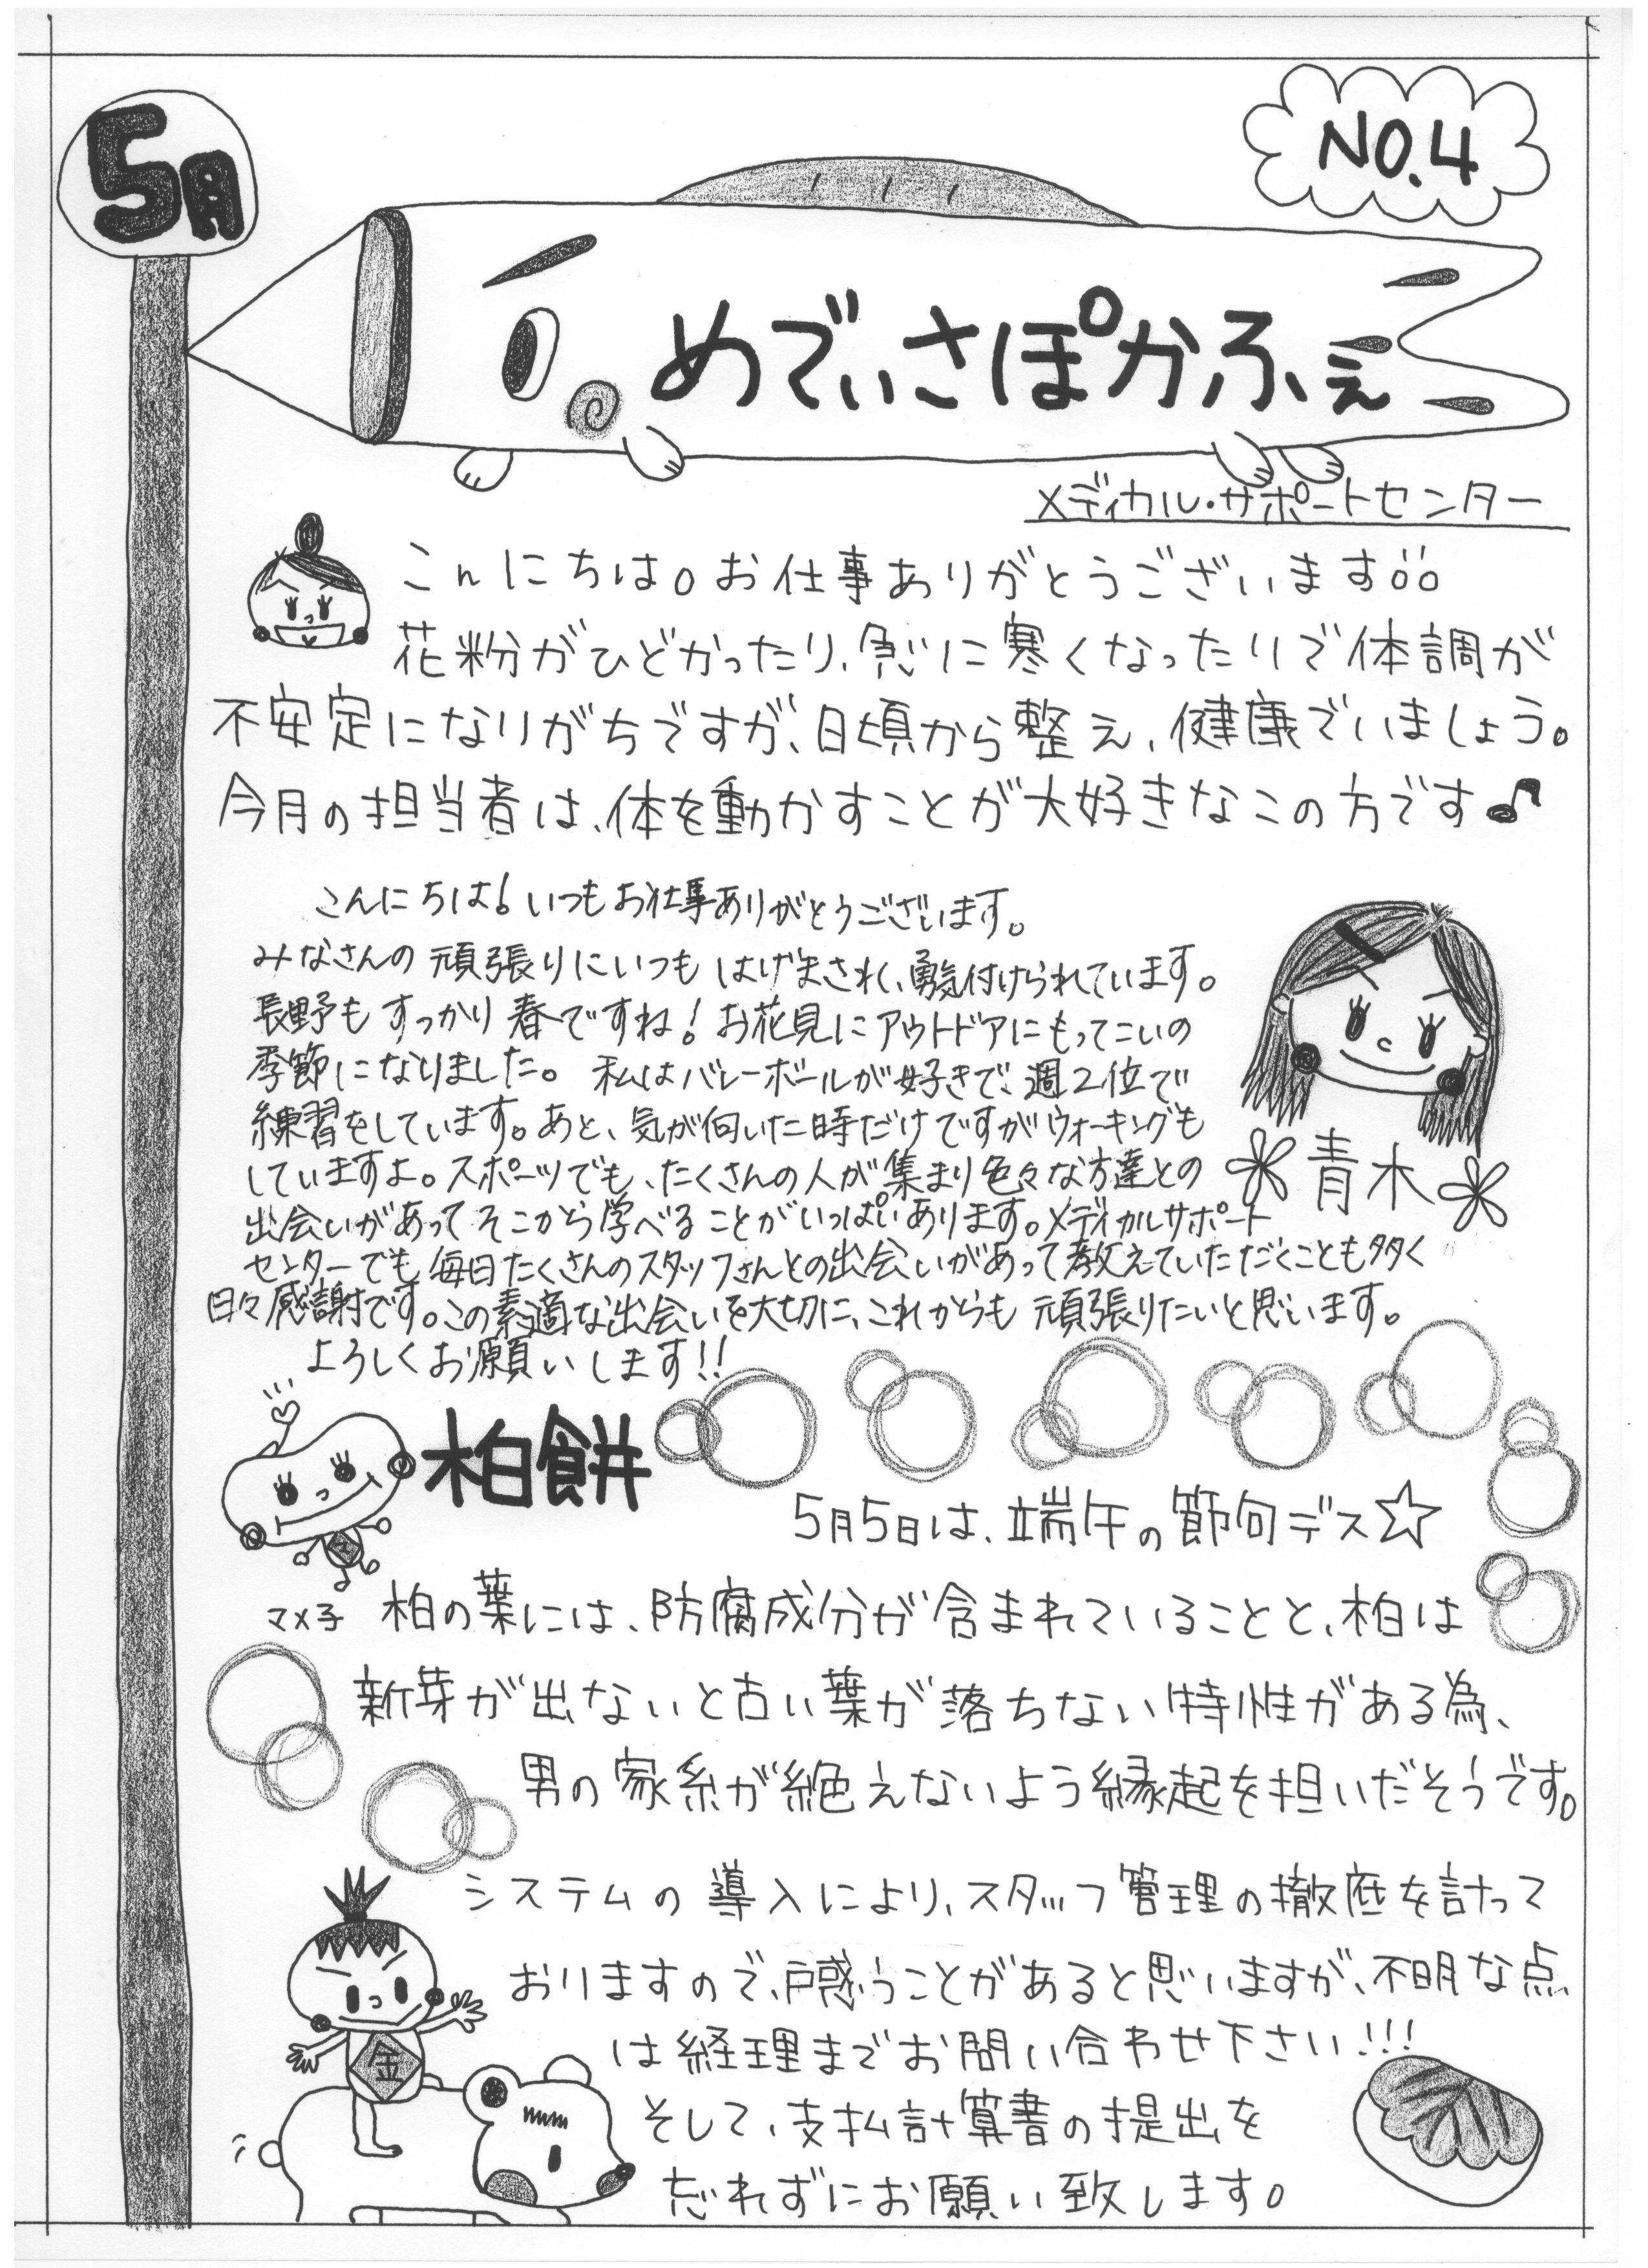 5月
NO.4
めでぃさぽかふぇ
メディカル・サポートセンター
こんにちは。お仕事ありがとうございます!!
花粉がひどかったり、急に寒くなったりで体調が
不安定になりがちですが、日頃から整え、健康でいましょう。
今月の担当者は、体を動かすことが大好きなこの方です♪
こんにちは!いつもお仕事ありがとうございます。
みなさんの頑張りにいつもはげまされ、勇気付けられています。
長野もすっかり春ですね!お花見にアウトドアにもってこいの
季節になりました。私はバレーボールが好きで、週2位で
練習をしています。あと、気が向いた時だけですがウォーキングも
していますよ。スポーツでも、たくさんの人が集まり色々な方達との
出会いがあってそこから学べることがいっぱいあります。メディカルサポート
センターでも、毎日たくさんのスタッフさんとの出会いがあって教えていただくことも多く
日々感謝です。この素適な出会いを大切に、これからも頑張りたいと思います。
よろしくお願いします!!
青木
柏餅
5月5日は、端午の節句デス☆
マメ子
柏の葉には、防腐成分が含まれていることと、柏は
新芽が出ないと古い葉が落ちない特性がある為、
男の家系が絶えないよう縁起を担いだそうです。
システムの導入により、スタッフ管理の徹底を計って
おりますので、戸惑うことがあると思いますが、不明な点
は経理までお問い合わせ下さい!!!
そして、支払計算書の提出を
忘れずにお願い致します。
金